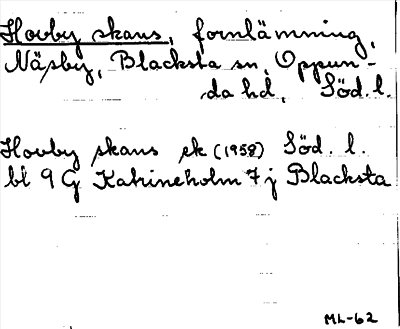 Hovby skans, fornlämning,
Näsby, Blacksta sn, Oppun-
da hd, Söd. l.
Hovby skans ek (1958) Söd. l.
bl 9 G Katrineholm 7 j Blacksta
ML-62